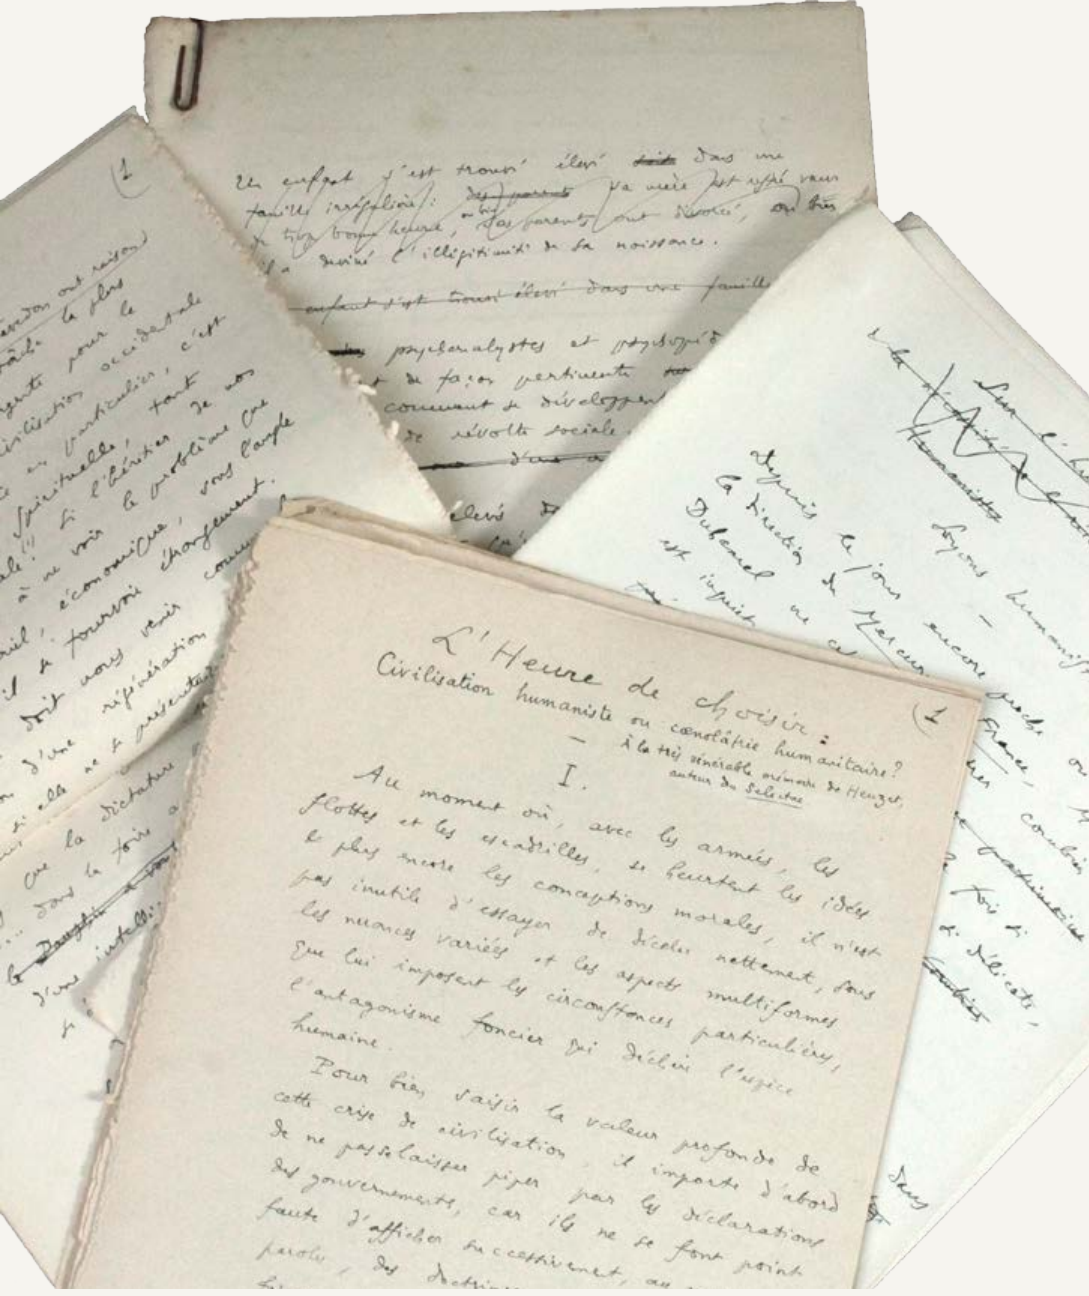 Un enfant s'est trouvé élevé dans une
famille irrégulière : des parents sa mère est restée veuve
de trop bonne heure, ou bien ses parents ont divorcé, ou bien
il a deviné l'illégitimité de sa naissance.
enfant s'est trouvé élevé dans une famille
psychanalystes et
de façon pertinente
comment se développent
de révolte sociale.
d'une
élevé de
1
ont raison
la plus
pour la
civilisation occidentale
en particulier, c'est
spirituelle, tant
si l'héritier de nos
à ne voir le problème que
économique, sous l'angle
il se fourvoie étrangement.
doit nous venir
d'une régénération
si elle ne se présentait
que la dictature
dans la foire
le Dauphin a tous
d'une intelli
si
Sur l'hu
à la
Humanistes
Soyons humanist
Depuis le jour encore proche où
la direction du Mercure France, M
Duhamel ne
est inquiet
patrimoine
fois si
si délicate,
Combien
dans
L'Heure de choisir :
Civilisation humaniste ou cœnolâtrie humanitaire ?
À la très vénérable mémoire de Heuzet,
auteur du Selectae
1
I.
Au moment où, avec les armées, les
flottes et les escadrilles, se heurtent les idées
et plus encore les conceptions morales, il n'est
pas inutile d'essayer de déceler nettement, sous
les nuances variées et les aspects multiformes
que lui imposent les circonstances particulières,
l'antagonisme foncier qui déchire l'espèce
humaine.
Pour bien saisir la valeur profonde de
cette crise de civilisation, il importe d'abord
de ne pas se laisser piper par les déclarations
des gouvernements, car ils ne se font point
faute d'afficher successivement, au
parole, des doctrines